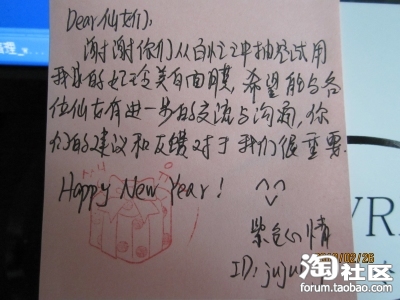 Dear仙女们:
谢谢你们从百忙之中抽空试用
我家的好美白面膜,希望能与各
位仙女有进一步的交流与沟通,你
们的建议和反馈对于我们很重要.
Happy New Year! ^^
柴色心情
ID: juju
02/26
淘社区
forum.taobao.com